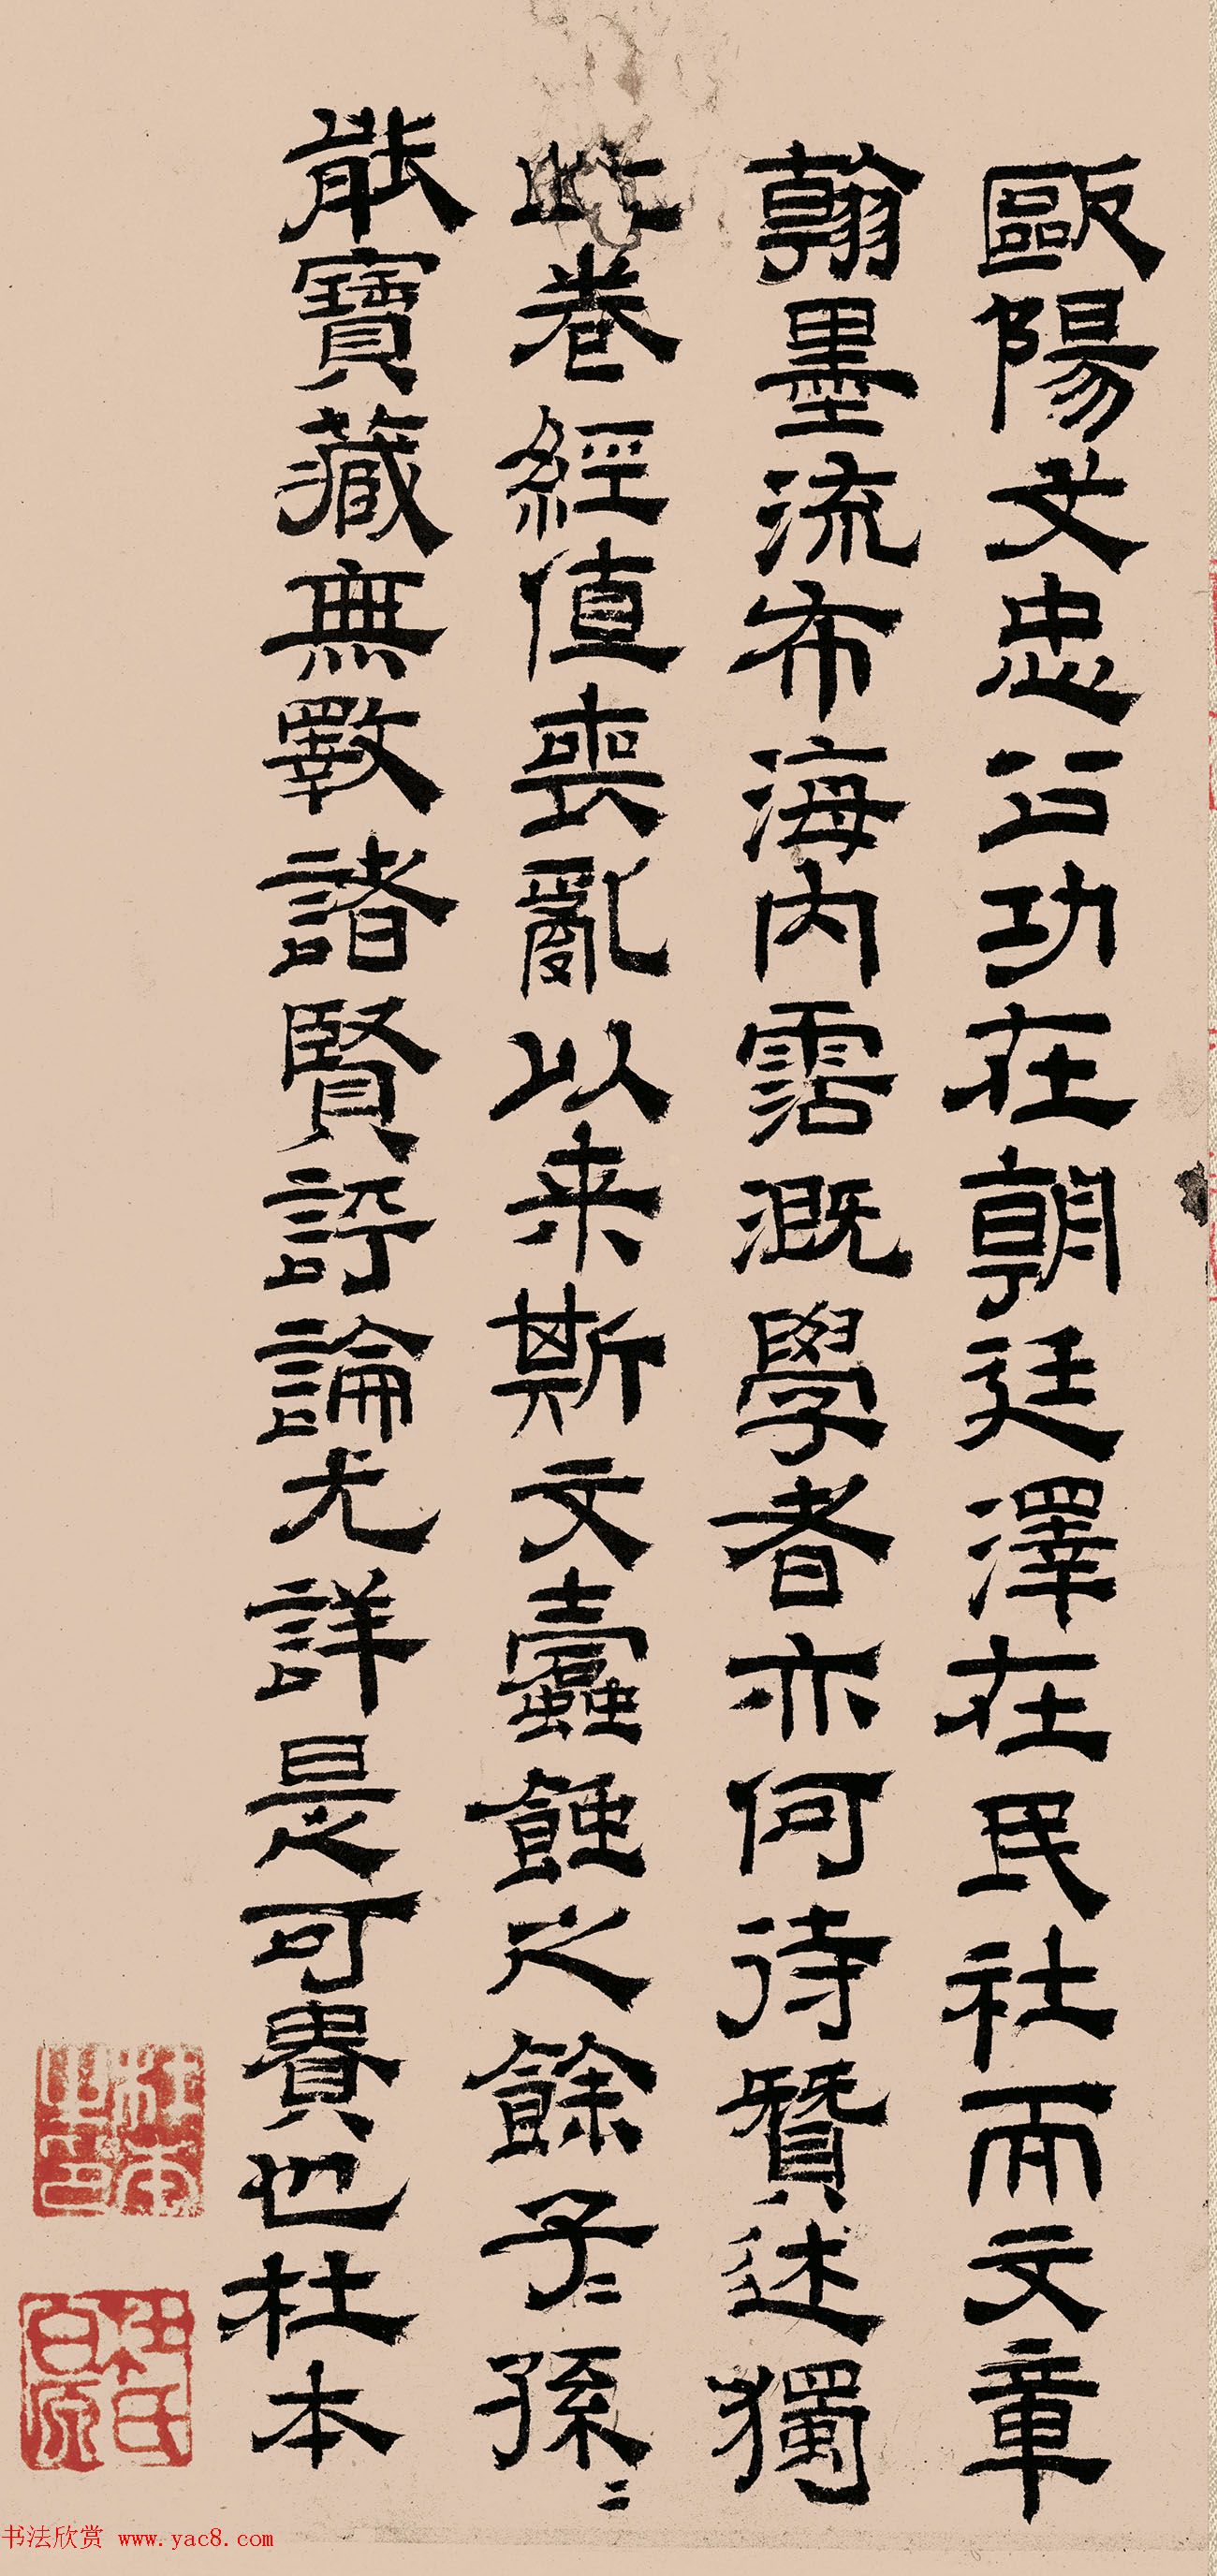 歐陽文忠公功在朝廷澤在民社而文章
翰墨流布海內霑溉學者亦何待贊述獨
此卷經值喪亂以来斯文蠹蝕之餘子〻孫〻
能寶藏無斁諸賢評論尤詳是可貴也杜本
杜本之印
伯原
书法欣赏 www.yac8.com